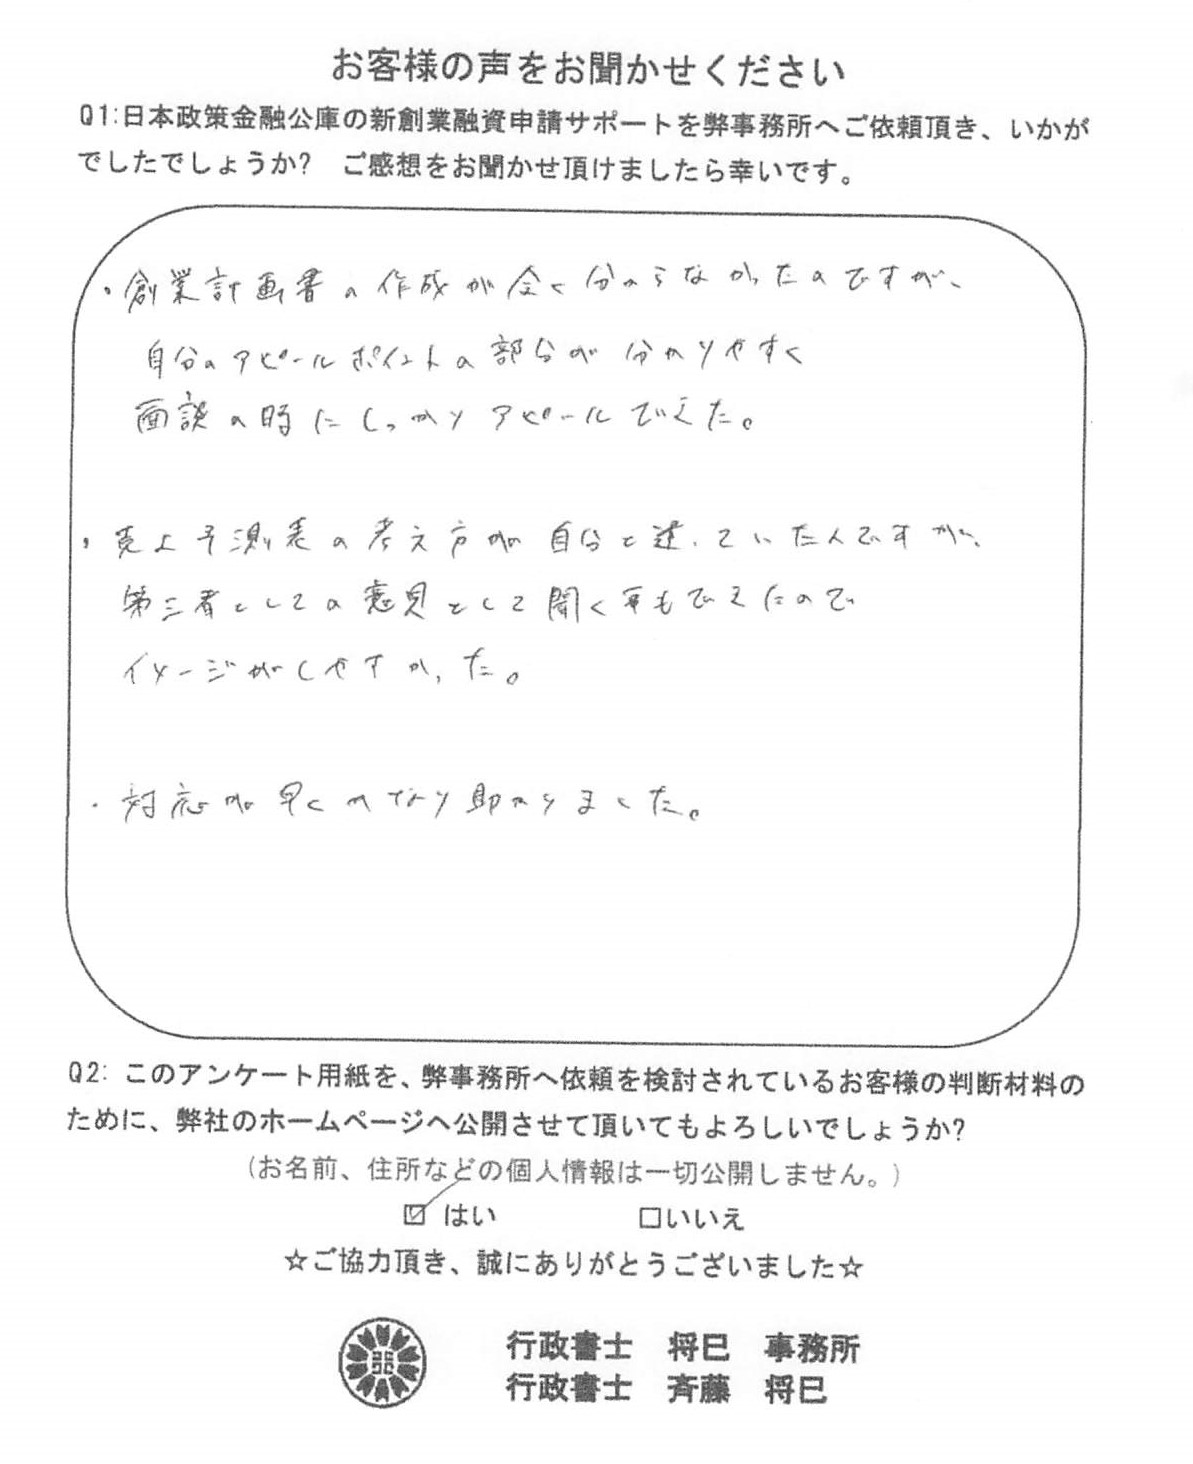 お客様の声をお聞かせください
Q1:日本政策金融公庫の新創業融資申請サポートを弊事務所へご依頼頂き、いかが
でしたでしょうか?　ご感想をお聞かせ頂けましたら幸いです。
・創業計画書の作成が全く分からなかったのですが、
自分のアピールポイントの部分が分かりやすく
面談の時にしっかりアピールできた。
・売上予測表の考え方が自分と違っていたんですが、
第三者としての意見として聞く事もできたので
イメージがしやすかった。
・対応が早くかなり助かりました。
Q2: このアンケート用紙を、弊事務所へ依頼を検討されているお客様の判断材料の
ために、弊社のホームページへ公開させて頂いてもよろしいでしょうか?
(お名前、住所などの個人情報は一切公開しません。)
☑ はい　□いいえ
☆ご協力頂き、誠にありがとうございました☆
行政書士　将巳　事務所
行政書士　斉藤　将巳